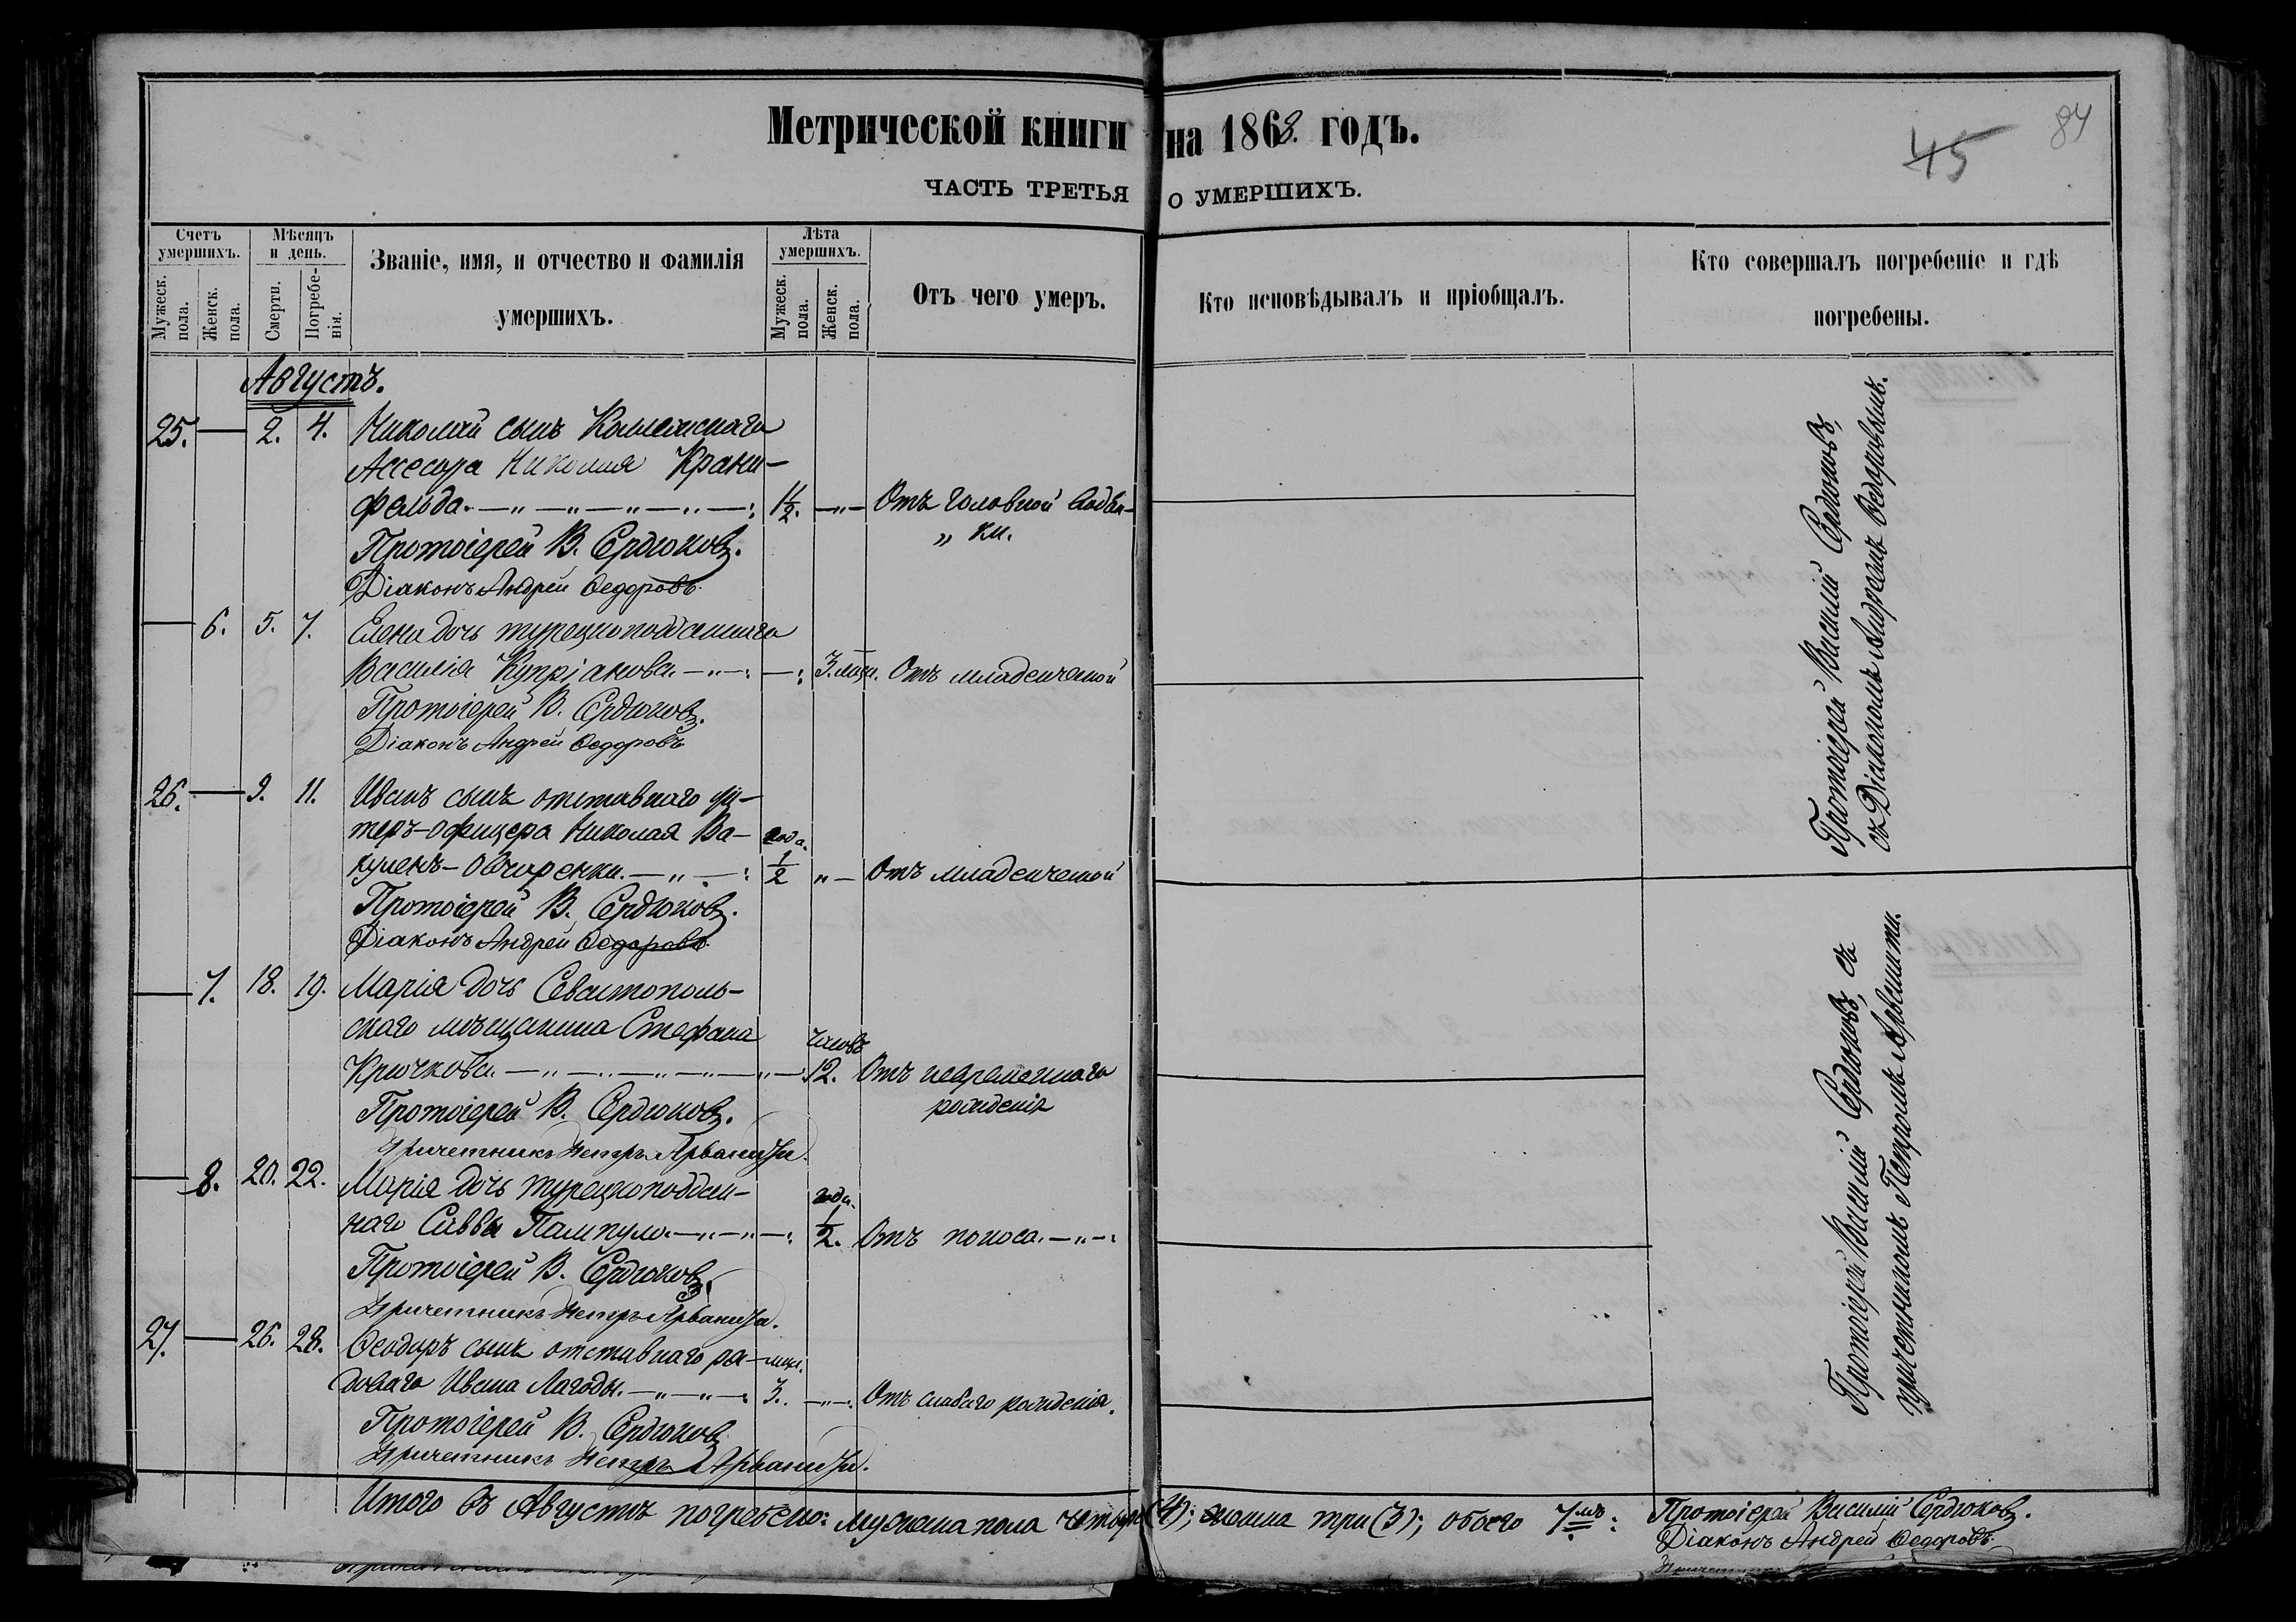 Метрической книги на 1868. годъ.
45
84
ЧАСТЬ ТРЕТЬЯ О УМЕРШИХЪ.
Счетъ умершихъ.
Мужеск. пола.
Женск. пола.
Мѣсяцъ и день.
Смерти.
Погребенія.
Званіе, имя, и отчество и фамилія
умершихъ.
Лѣта умершихъ.
Мужеск. пола.
Женск. пола.
Отъ чего умеръ.
Кто исповѣдывалъ и пріобщалъ.
Кто совершалъ погребеніе и гдѣ
погребены.
Августъ.
25. — 2. 4. Николай сынъ Коллежскаго
Ассесора Николая Крани-
фельда. 1½. Отъ головной водян-
ки.
Протоіерей В. Сердюковъ.
Діаконъ Андрей Ѳедоровъ.
— 6. 5. 7. Елена дочь турецкоподданнаго
Василія Купріанова 3. мѣсц. Отъ младенческой
Протоіерей В. Сердюковъ.
Діаконъ Андрей Ѳедоровъ
26. — 9. 11. Иванъ сынъ отставнаго ун-
теръ-офицера Николая Ва- года.
куленъ-Овчаренки. ½ Отъ младенческой
Протоіерей В. Сердюковъ.
Діаконъ Андрей Ѳедоровъ.
— 7. 18. 19. Марія дочь Севастополь-
скаго мѣщанина Стефана часовъ
Крючкова. 12. Отъ невременнаго
рожденія
Протоіерей В. Сердюковъ.
Причетникъ Петръ Арваниди.
— 8. 20. 22. Марія дочь турецкоподдан- года.
наго Саввы Пампуло. ½. Отъ поноса.
Протоіерей В. Сердюковъ.
Причетникъ Петръ Арваниди.
27. — 26. 28. Ѳеодоръ сынъ отставнаго ря- мѣсц.
доваго Ивана Лагоды. 3. Отъ слабаго рожденія.
Протоіерей В. Сердюковъ
Причетникъ Петръ Арваниди.
Протоіерей Василій Сердюковъ,
съ Діакономъ Андреемъ Ѳедоровымъ.
Протоіерей Василій Сердюковъ, съ
причетникомъ Петромъ Арванити.
Итого въ Августѣ погребено: мужеска пола четыре (4); женска три (3); обоего 7мь:
Протоіерей Василій Сердюковъ.
Діаконъ Андрей Ѳедоровъ.